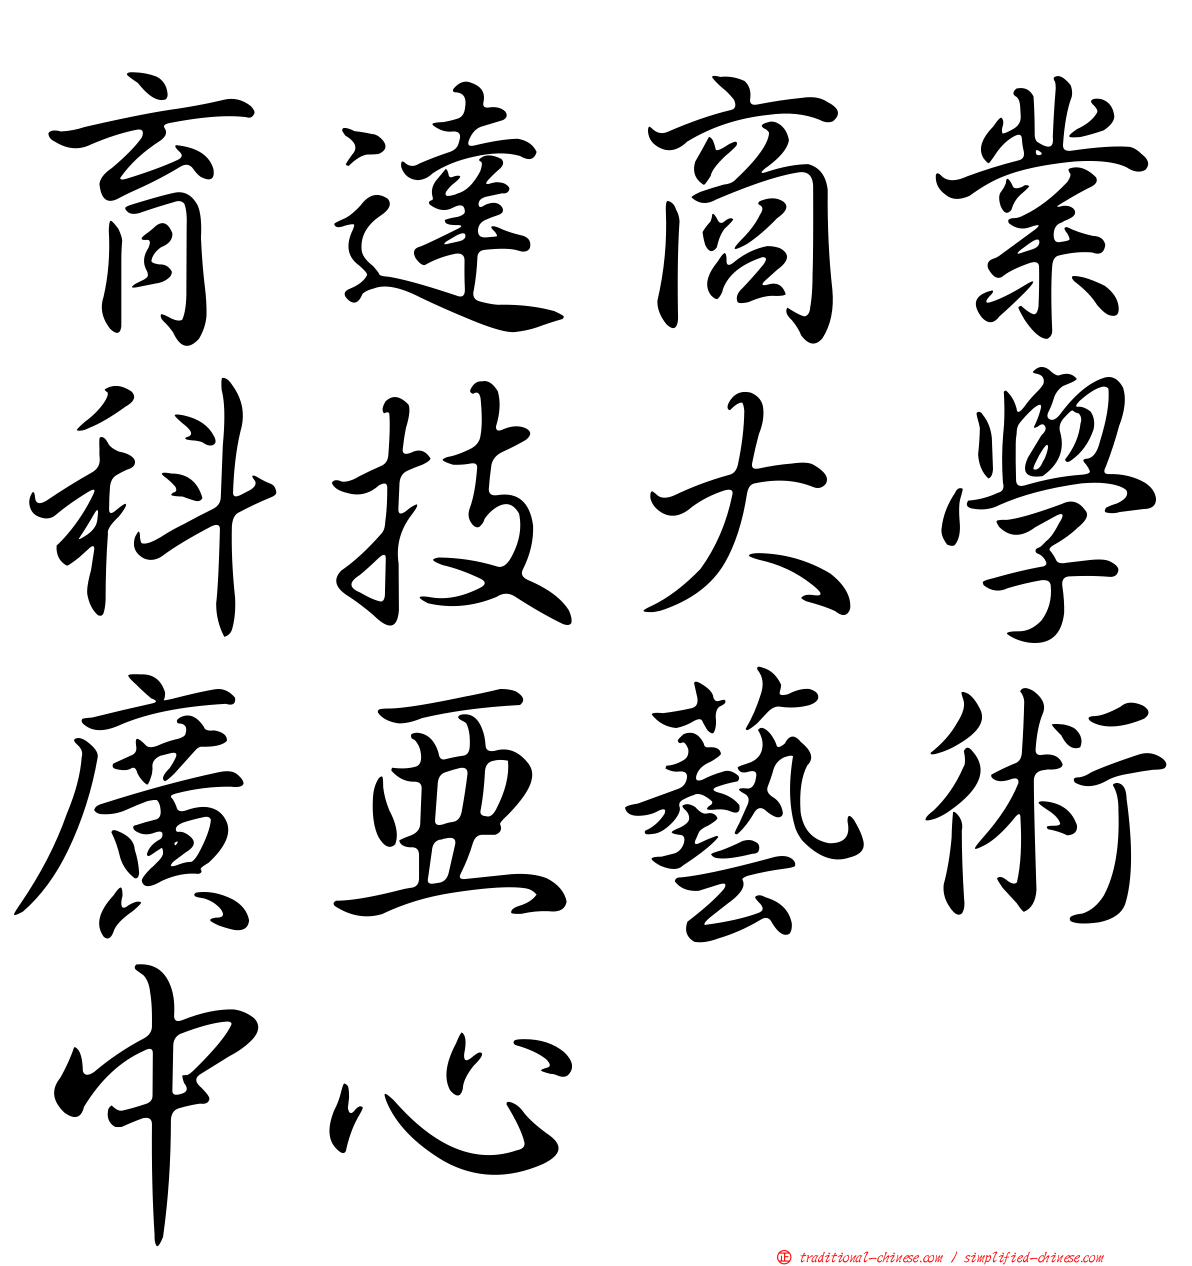 育達商業
科技大學
廣亞藝術
中心
正 traditional-chinese.com / simplified-chinese.com